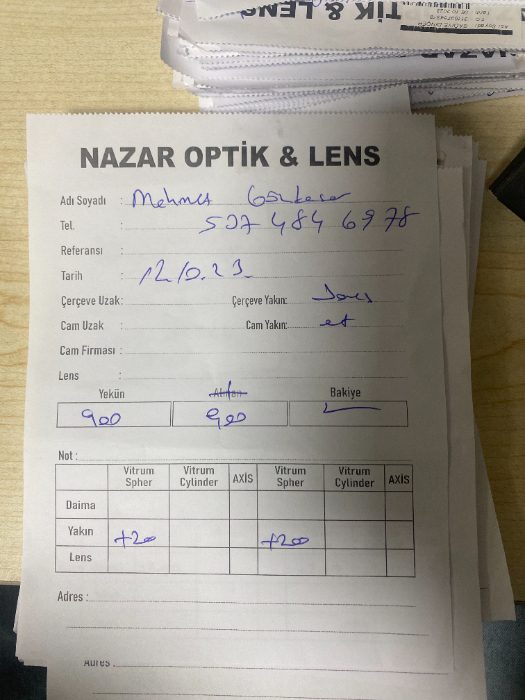 TİK & LENS
NAZAR
NAZAR OPTİK & LENS
Adı Soyadı : Mehmet
Tel. : 507 484 6978
Referansı :
Tarih : 12/0.23
Çerçeve Uzak: Çerçeve Yakın:
Cam Uzak : Cam Yakın:
Cam Firması :
Lens :
Yekün Alınan Bakiye
900 900
Not :
Vitrum Spher Vitrum Cylinder AXİS Vitrum Spher Vitrum Cylinder AXİS
Daima
Yakın +200 +200
Lens
Adres :
Adres